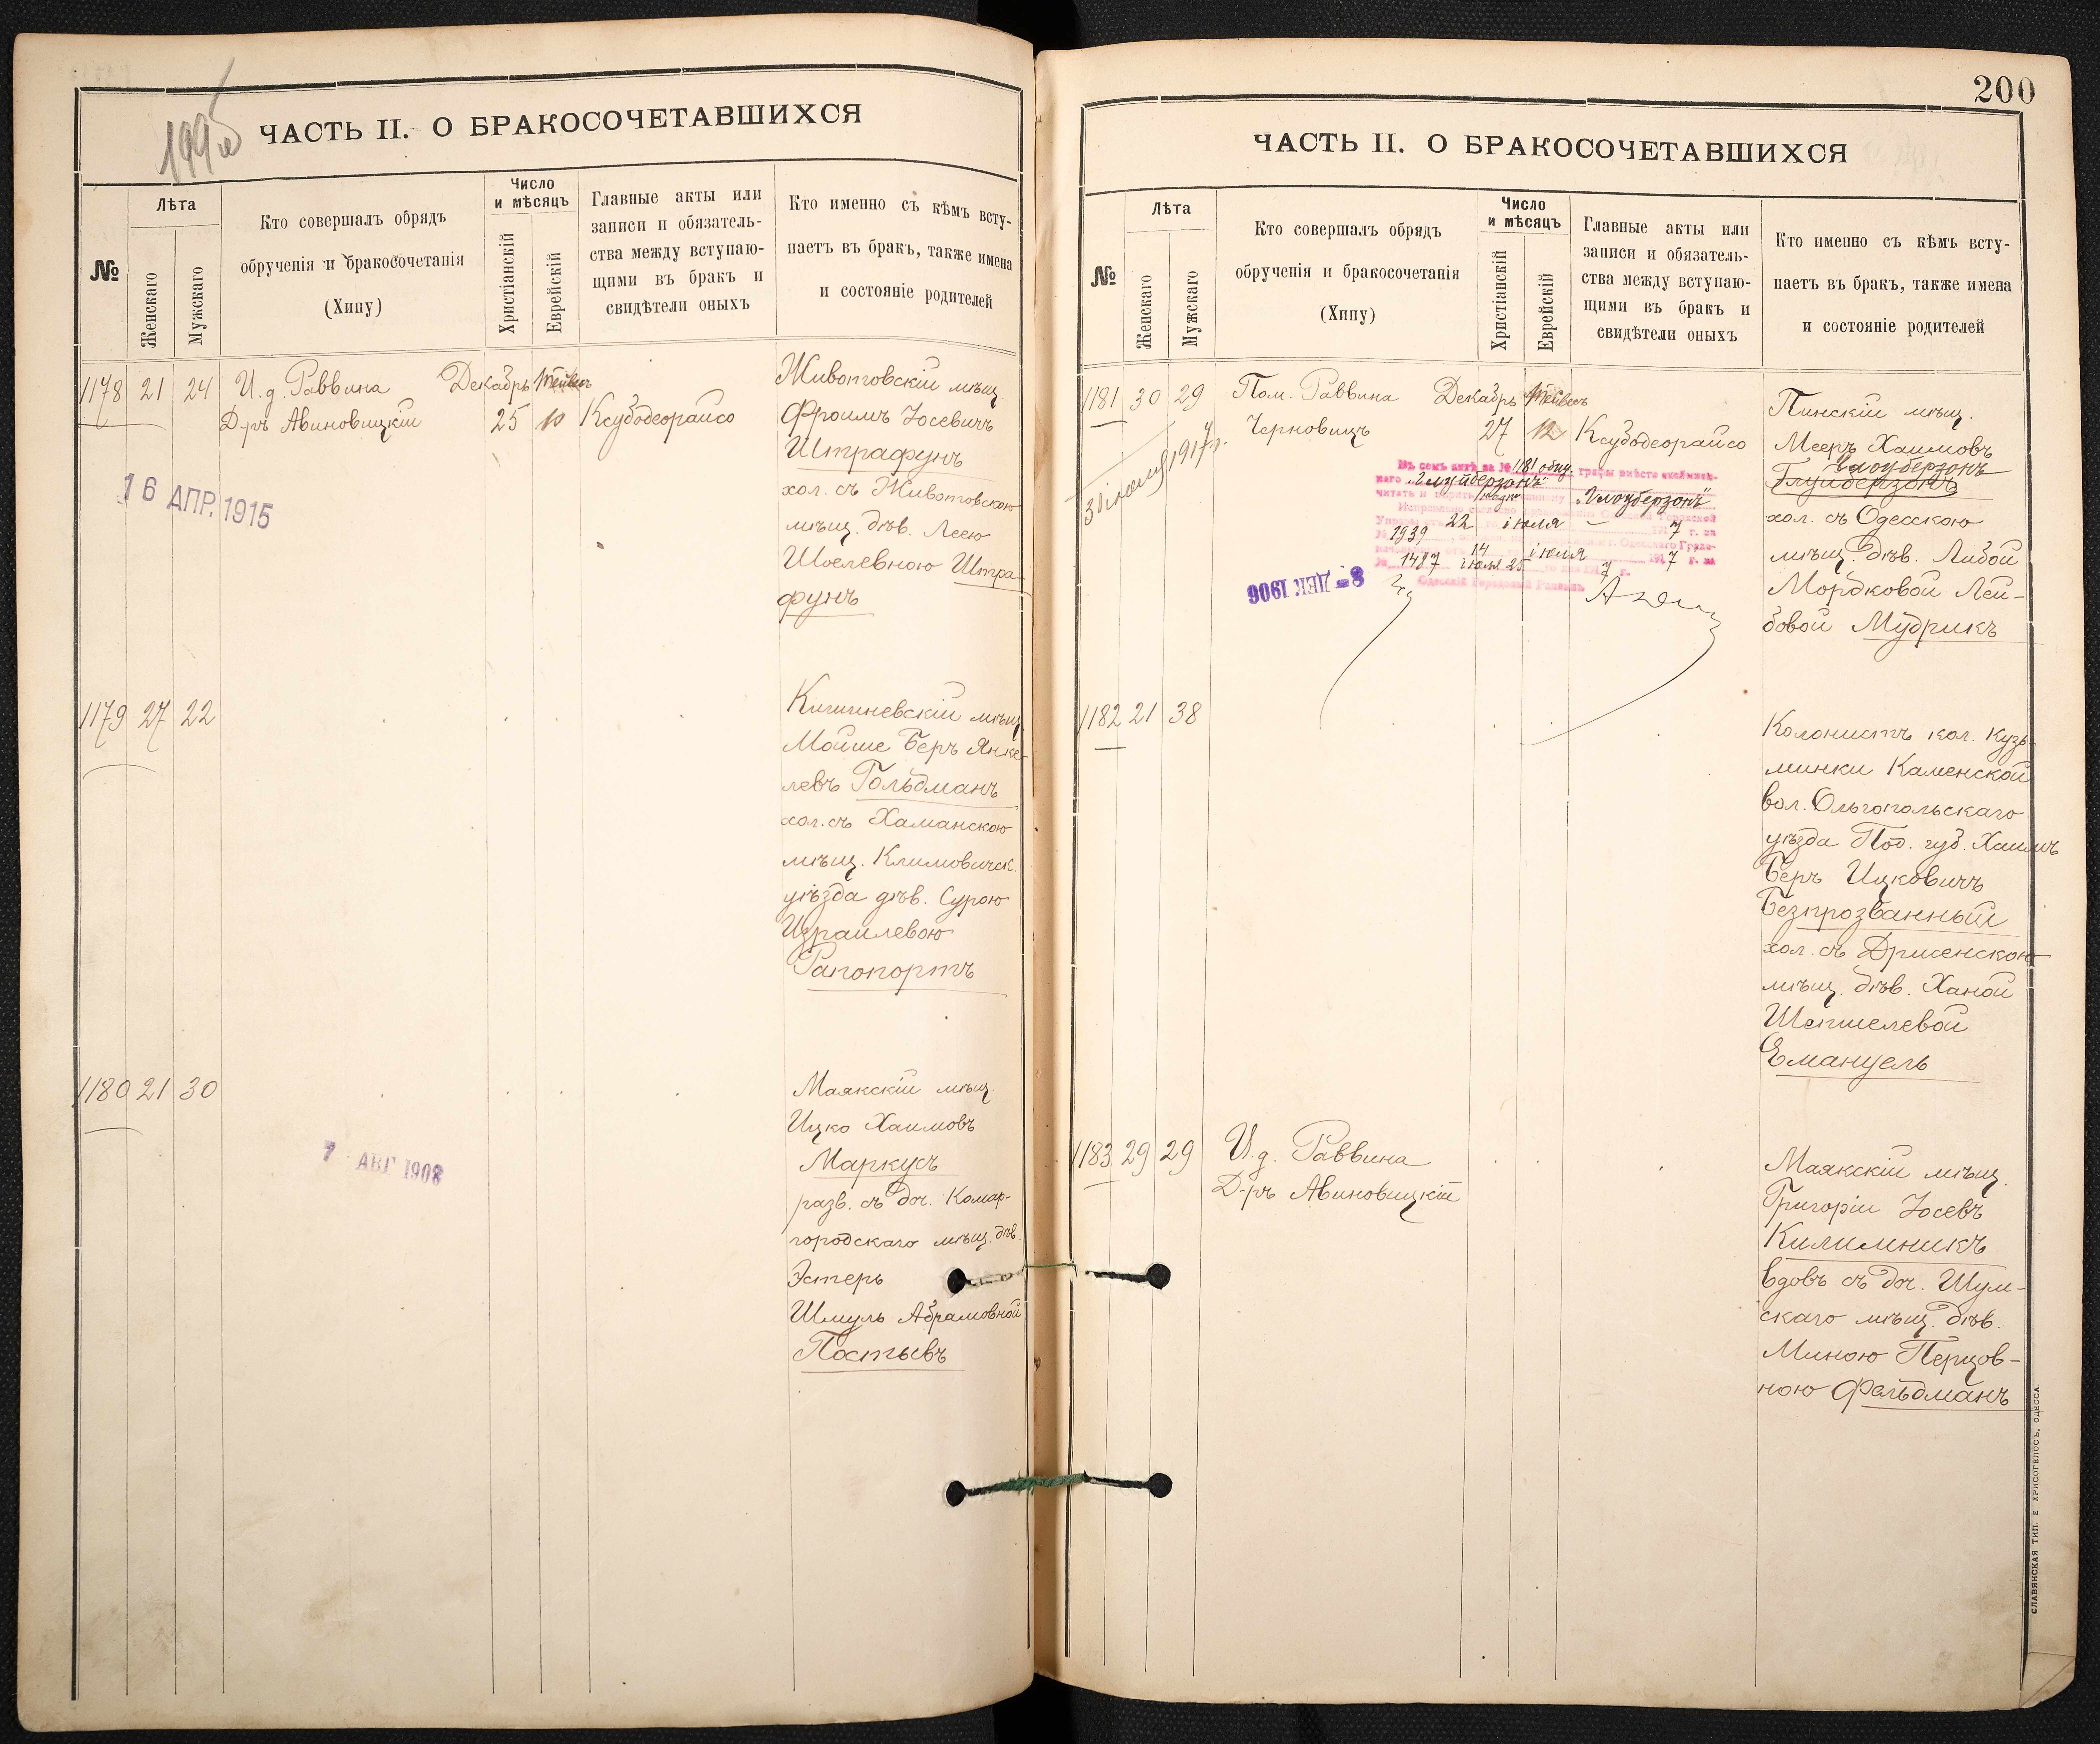 199об
ЧАСТЬ II. О БРАКОСОЧЕТАВШИХСЯ
№
Лѣта
Женскаго
Мужскаго
Кто совершалъ обрядъ
обрученія и бракосочетанія
(Хипу)
Число
и мѣсяцъ
Христіанскій
Еврейскій
Главные акты или
записи и обязатель-
ства между вступаю-
щими въ бракъ и
свидѣтели оныхъ
Кто именно съ кѣмъ всту-
паетъ въ бракъ, также имена
и состояніе родителей
1178 21 24 И. д. Раввина Декабрь Тейвесъ
Д-ръ Авиновицкій 25 10 Ксубодеорайсо
Животовскій мѣщ.
Фроимъ Іосевичъ
Штрафунъ
хол. съ Животовскою
мѣщ. дѣв. Леею
Шоелевною Штра-
фунъ
16 АПР. 1915
1179 27 22
Кишиневскій мѣщ.
Мойше Беръ Янке-
левъ Гольдманъ
хол. съ Хаманскою
мѣщ. Климовичск.
уѣзда дѣв. Сурою
Израилевою
Рапопортъ
1180 21 30
Маякскій мѣщ.
Ицко Хаимовъ
Маркусъ
разв. съ доч. Комар-
городскаго мѣщ. дѣв.
Эстеръ
Шмуль Абрамовной
Постывъ
7 АВГ 1908
200
ЧАСТЬ II. О БРАКОСОЧЕТАВШИХСЯ
№
Лѣта
Женскаго
Мужскаго
Кто совершалъ обрядъ
обрученія и бракосочетанія
(Хипу)
Число
и мѣсяцъ
Христіанскій
Еврейскій
Главные акты или
записи и обязатель-
ства между вступаю-
щими въ бракъ и
свидѣтели оныхъ
Кто именно съ кѣмъ всту-
паетъ въ бракъ, также имена
и состояніе родителей
1181 30 29 Пом. Раввина Декабрь Тейвесъ
Черновицъ 27 12 Ксубодеорайсо
Пинскій мѣщ.
Мееръ Хаимовъ
Глоуберзонъ
Глуйберзонъ
хол. съ Одесскою
мѣщ. дѣв. Либой
Мордковой Лей-
бовой Мудрикъ
31 іюля 1917 г.
Въ семъ актѣ за № 1181 общ. графы вмѣсто
"Глуйберзонъ"
читать "Глоуберзонъ"
22 іюля 7 г. за
№ 1939
14 іюля 1917 г. за
№ 1487 іюля 25 7 г.
Одесскій Городовой Раввинъ
8 - ДЕК 1906
1182 21 38
Колонистъ кол. Кузь-
минки Каменской
вол. Ольгопольскаго
уѣзда Под. губ. Хаимъ
Беръ Ицковичъ
Безпрозванный
хол. съ Дрисенскою
мѣщ. дѣв. Ханой
Шепшелевой
Емануель
1183 29 29 И. д. Раввина
Д-ръ Авиновицкій
Маякскій мѣщ.
Григорій Іосевъ
Килимникъ
вдовъ съ доч. Шум-
скаго мѣщ. дѣв.
Миною Перцов-
ною Фельдманъ
СЛАВЯНСКАЯ ТИП. Е ХРИСОГЕЛОСЪ, ОДЕССА.